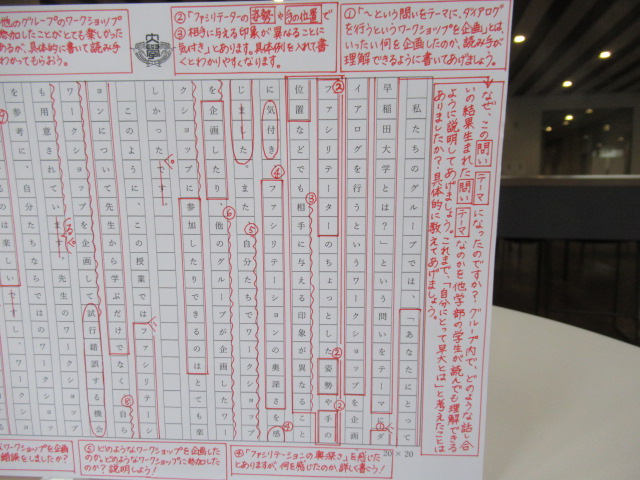 ①「〜という問いをテーマに、ダイアログ
を行うというワークショップを企画」とは、
いったい何を企画したのか、読み手が
理解できるように書いてあげましょう。
②「ファシリテーターの姿勢や手の位置」で
③相手に与える印象が異なることに
気付き」とあります。具体例を入れて書
くとわかりやすくなります。
他のグループのワークショップ
参加したことがとても楽しかった
あるが、具体的に書いて読み手
わかってもらおう。
なぜ、この問いテーマになったのですか?グループ内で、どのような話し合
いの結果生まれた問いテーマなのかを他学部の学生が読んでも理解できる
ように説明してあげましょう。これまで、「自分にとって早大とは?」と考えたことは
ありましたか?具体的に教えてあげましょう。
私たちのグループでは、「あなたにとって
早稲田大学とは?」という問いをテーマにダ
イアログを行うというワークショップを企画
②ファシリテーターのちょっとした②姿勢や②手の
位置などでも③相手に与える印象が異なること
に気付き④ファシリテーションの奥深さを④感
じました。また⑤自分たちでワークショップ
を企画したり⑥他のグループが企画したワー
クショップに参加したりできるのはとても楽
しかったです。
このように、この授業ではファシリテーシ
ョンについて先生から学ぶだけでなく⑧自ら
ワークショップを企画して試行錯誤する機会
も用意されています。先生のワーク
を参考に、自分たちならではのワークショッ
は楽しいです。し
20×20
④「ファシリテーションの奥深さ」を感じた
とありますが、何を感じたのか、詳しく書こう!
⑤どのようなワークショップを企画した
のか。どのようなワークショップに参加した
のか?説明しよう!
ワークショップを企画
錯誤をしましたか?